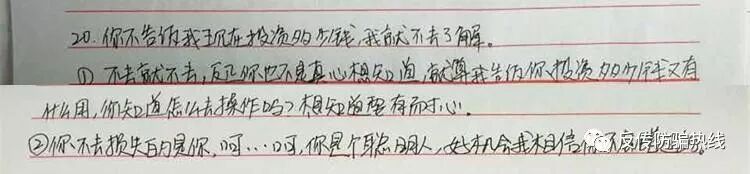 20.你不告诉我现在投资多少钱,我就不去了解。
①不去就不去,反正你也不是真心想知道,就算我告诉你投资多少钱又有
什么用,你知道怎么去操作吗?想知道要有耐心。
②你不去损失的是你,呵…呵,你是个聪明人,好机会我相信你不会错过的。
反传防骗热线